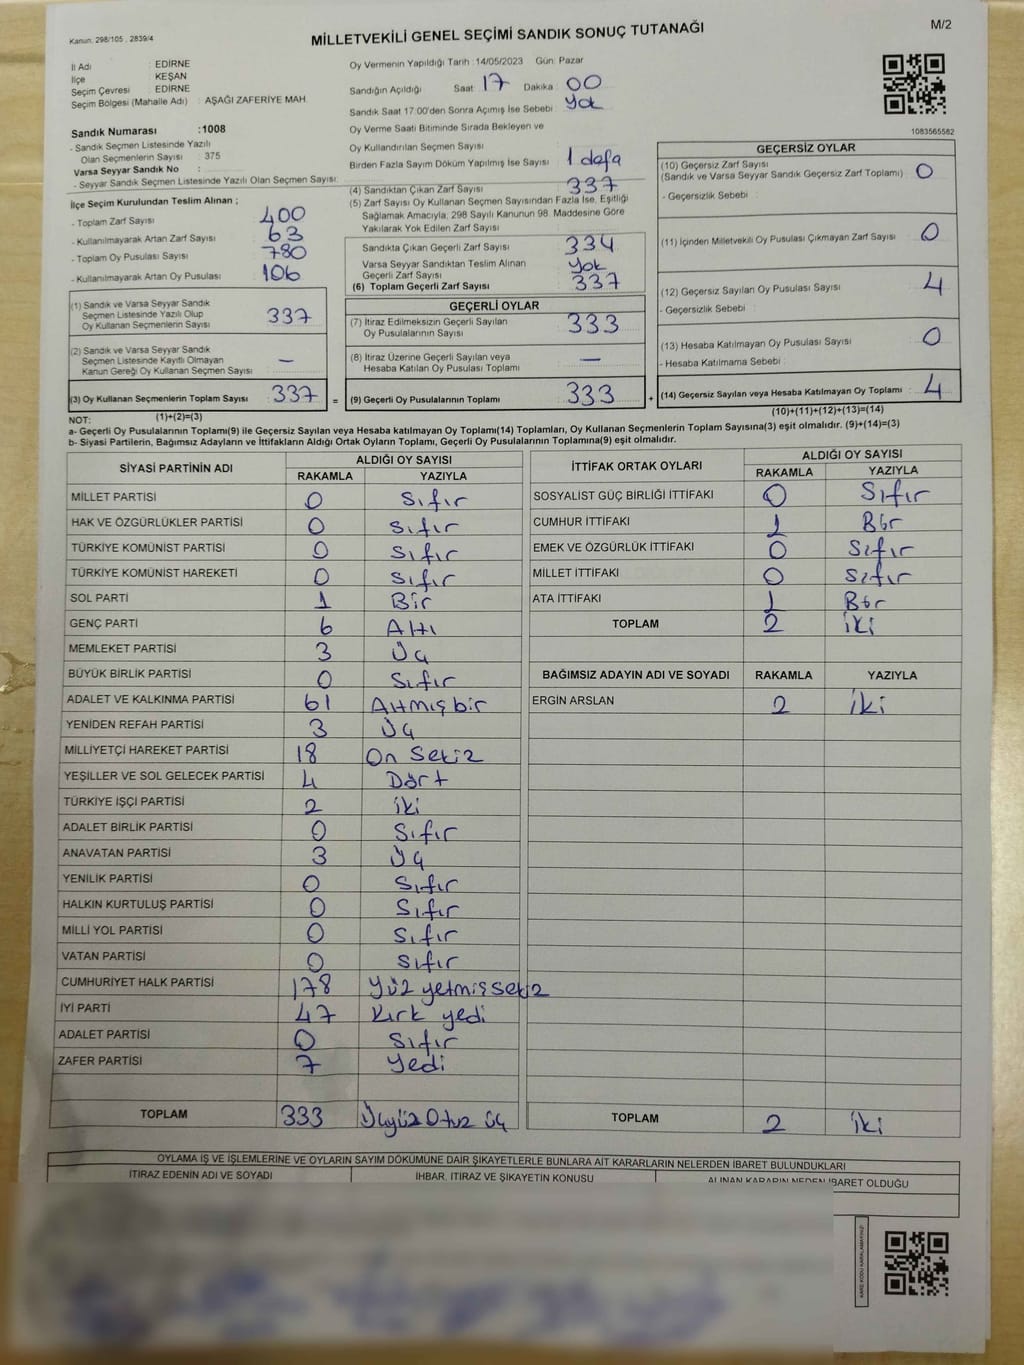 Kanun. 298/105 , 2839/4
MİLLETVEKİLİ GENEL SEÇİMİ SANDIK SONUÇ TUTANAĞI
M/2
İl Adı : EDİRNE
İlçe : KEŞAN
Seçim Çevresi : EDİRNE
Seçim Bölgesi (Mahalle Adı) : AŞAĞI ZAFERİYE MAH.
Sandık Numarası :1008
- Sandık Seçmen Listesinde Yazılı
Olan Seçmenlerin Sayısı : 375
Varsa Seyyar Sandık No :
- Seyyar Sandık Seçmen Listesinde Yazılı Olan Seçmen Sayısı:
Oy Vermenin Yapıldığı Tarih :14/05/2023 Gün: Pazar
Sandığın Açıldığı Saat : 17 Dakika : 00
Sandık Saat 17:00'den Sonra Açımış İse Sebebi : Yok
Oy Verme Saati Bitiminde Sırada Bekleyen ve
Oy Kullandırılan Seçmen Sayısı :
Birden Fazla Sayım Döküm Yapılmış İse Sayısı : 1 defa
1083565582
İlçe Seçim Kurulundan Teslim Alınan ;
- Toplam Zarf Sayısı : 400
- Kullanılmayarak Artan Zarf Sayısı : 63
- Toplam Oy Pusulası Sayısı : 780
- Kullanılmayarak Artan Oy Pusulası : 106
(1) Sandık ve Varsa Seyyar Sandık
Seçmen Listesinde Yazılı Olup
Oy Kullanan Seçmenlerin Sayısı : 337
(2) Sandık ve Varsa Seyyar Sandık
Seçmen Listesinde Kayıtlı Olmayan
Kanun Gereği Oy Kullanan Seçmen Sayısı : —
(3) Oy Kullanan Seçmenlerin Toplam Sayısı : 337 =
(1)+(2)=(3)
(4) Sandıktan Çıkan Zarf Sayısı : 337
(5) Zarf Sayısı Oy Kullanan Seçmen Sayısından Fazla İse, Eşitliği
Sağlamak Amacıyla, 298 Sayılı Kanunun 98. Maddesine Göre
Yakılarak Yok Edilen Zarf Sayısı :
Sandıkta Çıkan Geçerli Zarf Sayısı : 334
Varsa Seyyar Sandıktan Teslim Alınan
Geçerli Zarf Sayısı : Yok
(6) Toplam Geçerli Zarf Sayısı : 337
GEÇERLİ OYLAR
(7) İtiraz Edilmeksizin Geçerli Sayılan
Oy Pusulalarının Sayısı : 333
(8) İtiraz Üzerine Geçerli Sayılan veya
Hesaba Katılan Oy Pusulası Toplamı : —
(9) Geçerli Oy Pusulalarının Toplamı : 333 +
GEÇERSİZ OYLAR
(10) Geçersiz Zarf Sayısı
(Sandık ve Varsa Seyyar Sandık Geçersiz Zarf Toplamı) : 0
- Geçersizlik Sebebi :
(11) İçinden Milletvekili Oy Pusulası Çıkmayan Zarf Sayısı : 0
(12) Geçersiz Sayılan Oy Pusulası Sayısı : 4
- Geçersizlik Sebebi :
(13) Hesaba Katılmayan Oy Pusulası Sayısı : 0
- Hesaba Katılmama Sebebi :
(14) Geçersiz Sayılan veya Hesaba Katılmayan Oy Toplamı : 4
(10)+(11)+(12)+(13)=(14)
NOT:
a- Geçerli Oy Pusulalarının Toplamı(9) ile Geçersiz Sayılan veya Hesaba katılmayan Oy Toplamı(14) Toplamları, Oy Kullanan Seçmenlerin Toplam Sayısına(3) eşit olmalıdır. (9)+(14)=(3)
b- Siyasi Partilerin, Bağımsız Adayların ve İttifakların Aldığı Ortak Oyların Toplamı, Geçerli Oy Pusulalarının Toplamına(9) eşit olmalıdır.
SİYASİ PARTİNİN ADI ALDIĞI OY SAYISI
RAKAMLA YAZIYLA
MİLLET PARTİSİ 0 Sıfır
HAK VE ÖZGÜRLÜKLER PARTİSİ 0 Sıfır
TÜRKİYE KOMÜNİST PARTİSİ 0 Sıfır
TÜRKİYE KOMÜNİST HAREKETİ 0 Sıfır
SOL PARTİ 1 Bir
GENÇ PARTİ 6 Altı
MEMLEKET PARTİSİ 3 Üç
BÜYÜK BİRLİK PARTİSİ 0 Sıfır
ADALET VE KALKINMA PARTİSİ 61 Altmış bir
YENİDEN REFAH PARTİSİ 3 Üç
MİLLİYETÇİ HAREKET PARTİSİ 18 On Sekiz
YEŞİLLER VE SOL GELECEK PARTİSİ 4 Dört
TÜRKİYE İŞÇİ PARTİSİ 2 iki
ADALET BİRLİK PARTİSİ 0 Sıfır
ANAVATAN PARTİSİ 3 Üç
YENİLİK PARTİSİ 0 Sıfır
HALKIN KURTULUŞ PARTİSİ 0 Sıfır
MİLLİ YOL PARTİSİ 0 Sıfır
VATAN PARTİSİ 0 Sıfır
CUMHURİYET HALK PARTİSİ 178 Yüz yetmiş sekiz
İYİ PARTİ 47 Kırk yedi
ADALET PARTİSİ 0 Sıfır
ZAFER PARTİSİ 7 Yedi
TOPLAM 333 Üçyüz Otuz üç
İTTİFAK ORTAK OYLARI ALDIĞI OY SAYISI
RAKAMLA YAZIYLA
SOSYALİST GÜÇ BİRLİĞİ İTTİFAKI 0 Sıfır
CUMHUR İTTİFAKI 1 Bir
EMEK VE ÖZGÜRLÜK İTTİFAKI 0 Sıfır
MİLLET İTTİFAKI 0 Sıfır
ATA İTTİFAKI 1 Bir
TOPLAM 2 iki
BAĞIMSIZ ADAYIN ADI VE SOYADI RAKAMLA YAZIYLA
ERGİN ARSLAN 2 iki
TOPLAM 2 iki
OYLAMA İŞ VE İŞLEMLERİNE VE OYLARIN SAYIM DÖKÜMÜNE DAİR ŞİKAYETLERLE BUNLARA AİT KARARLARIN NELERDEN İBARET BULUNDUKLARI
İTİRAZ EDENİN ADI VE SOYADI İHBAR, İTİRAZ VE ŞİKAYETİN KONUSU ALINAN KARARIN NEDEN İBARET OLDUĞU
KARE KODU KARALAMAYINIZ!